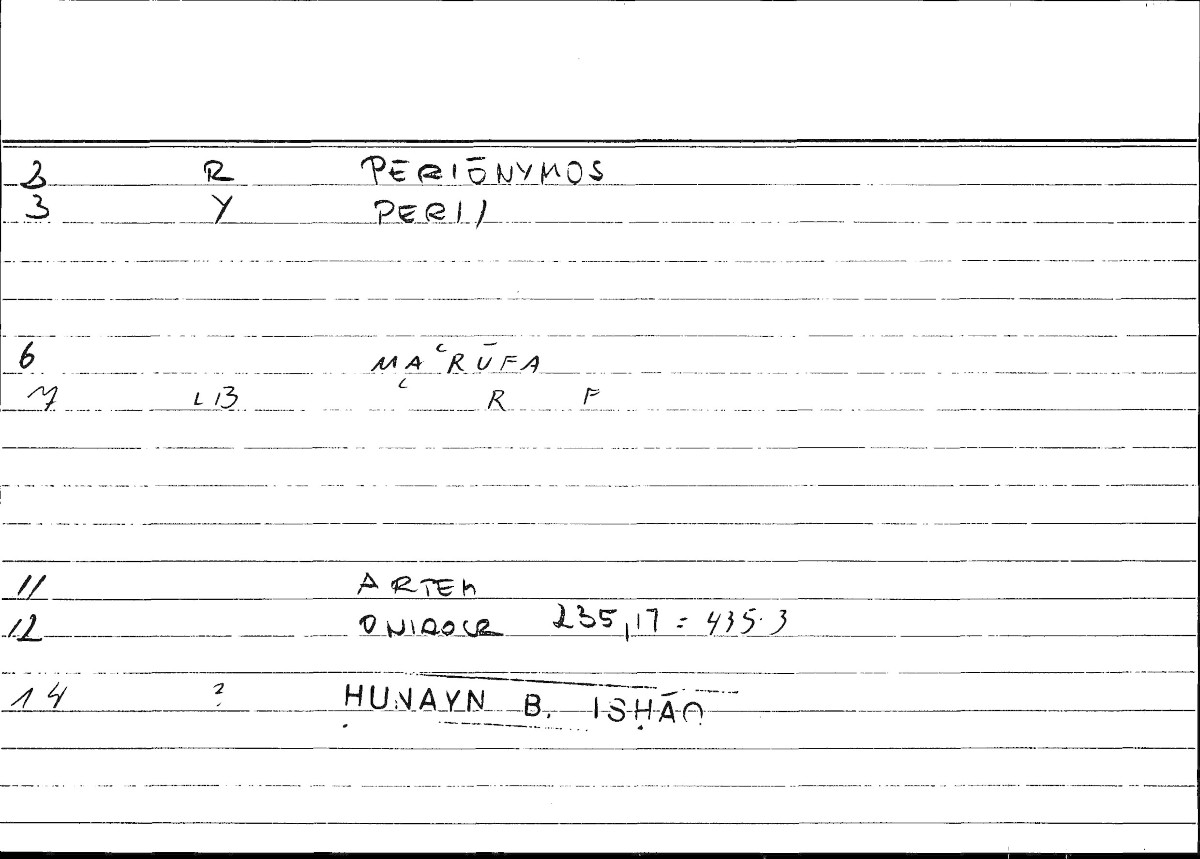 2 R PERIŌNYMOS
3 Y PERI)
6 MAʿRŪFA
7 LB ʿ R F
11 ARTEM
12 ONIROCR 235,17 = 435.3
14 ? ḤUNAYN B. ISḤĀQ